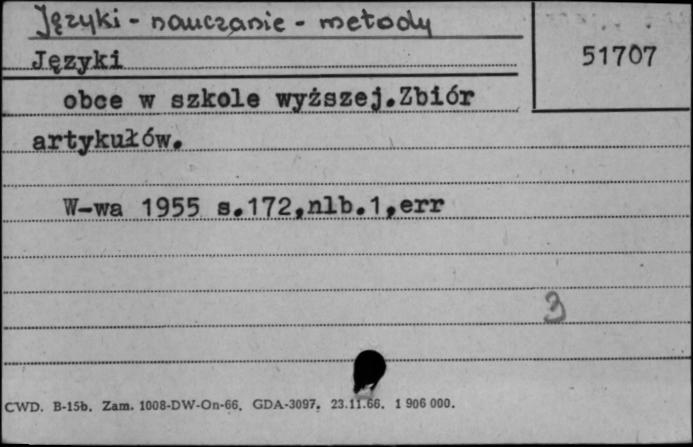 Języki - nauczanie - metody
Języki
51707
obce w szkole wyższej.Zbiór
artykułów.
W-wa 1955 s.172,nlb.1,err
3
CWD. B-15b. Zam. 1008-DW-On-66. GDA-3097. 23.11.66. 1 906 000.